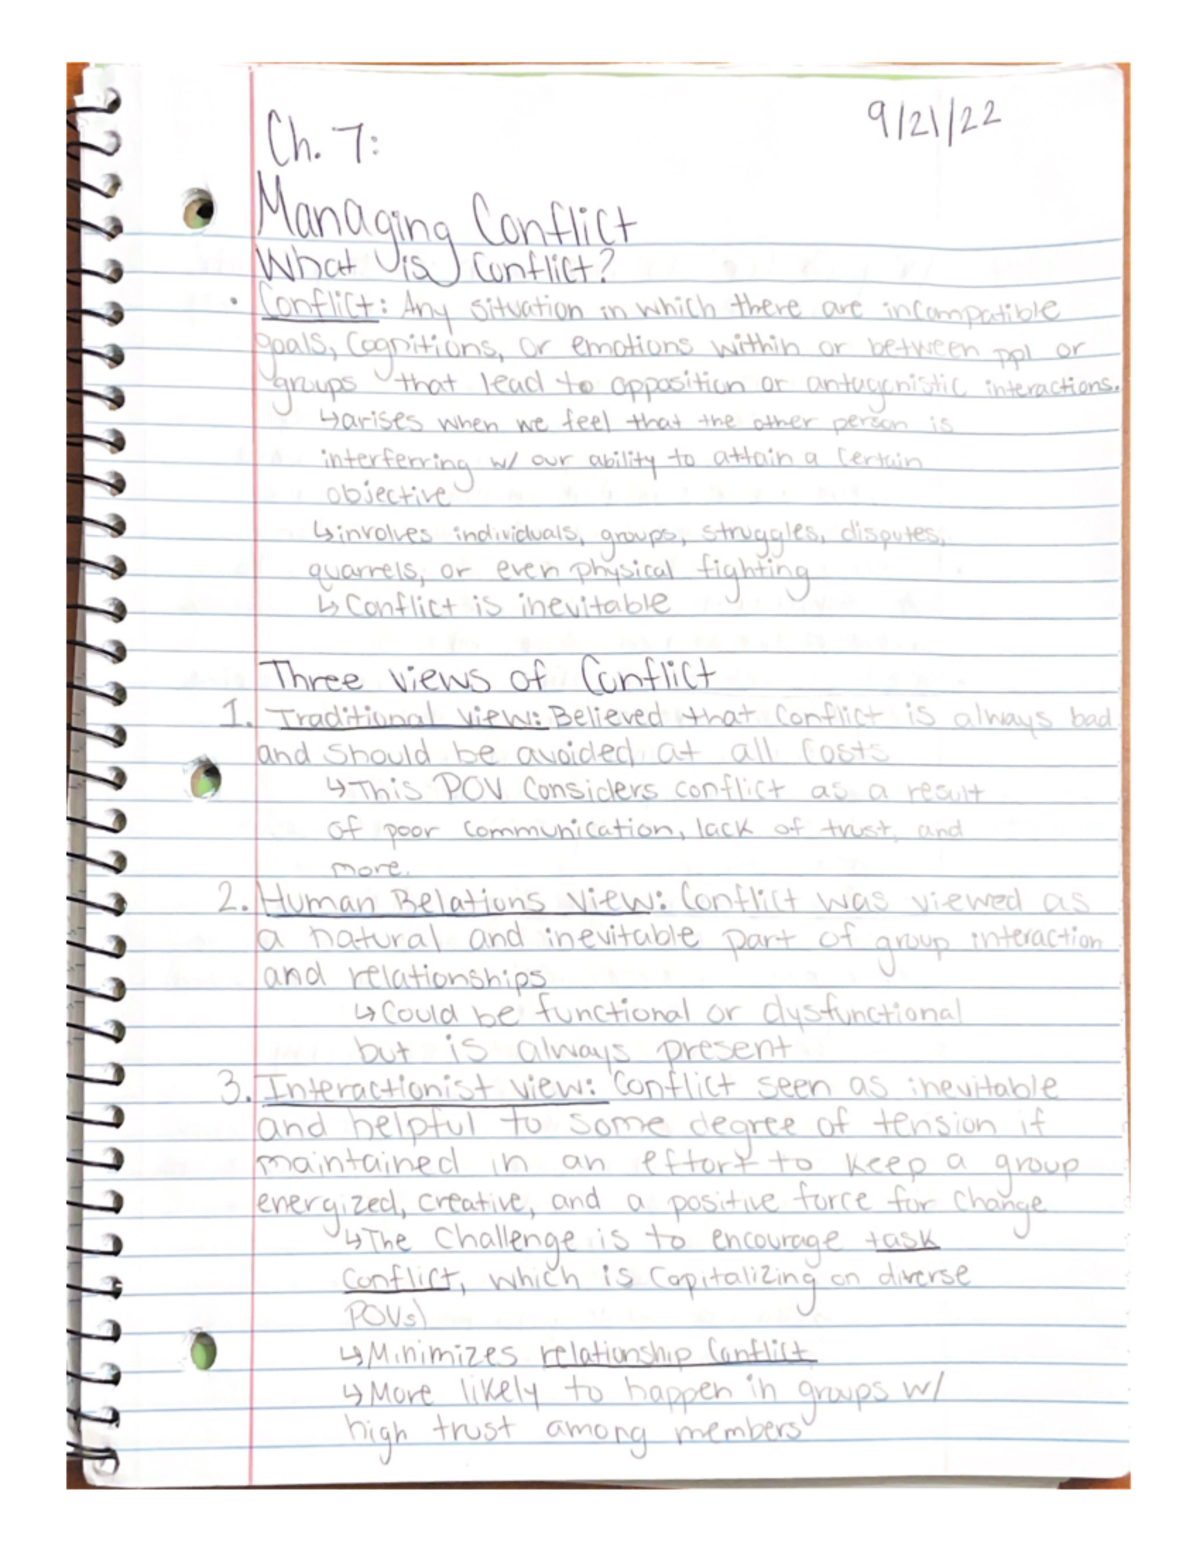 9/21/22
Ch. 7:
Managing Conflict
What is Conflict?
• Conflict: Any situation in which there are incompatible
goals, cognitions, or emotions within or between ppl or
groups that lead to opposition or antagonistic interactions.
↳arises when we feel that the other person is
interferring w/ our ability to attain a certain
objective
↳involves individuals, groups, struggles, disputes,
quarrels, or even physical fighting
↳ Conflict is inevitable
Three views of Conflict
1. Traditional view: Believed that conflict is always bad
and should be avoided at all costs
↳This POV considers conflict as a result
of poor communication, lack of trust, and
more.
2. Human Relations view: Conflict was viewed as
a natural and inevitable part of group interaction
and relationships
↳Could be functional or dysfunctional
but is always present
3. Interactionist view: Conflict seen as inevitable
and helpful to some degree of tension if
maintained in an effort to keep a group
energized, creative, and a positive force for change
↳The challenge is to encourage task
conflict, which is capitalizing on diverse
POVs)
↳Minimizes relationship conflict
↳More likely to happen in groups w/
high trust among members